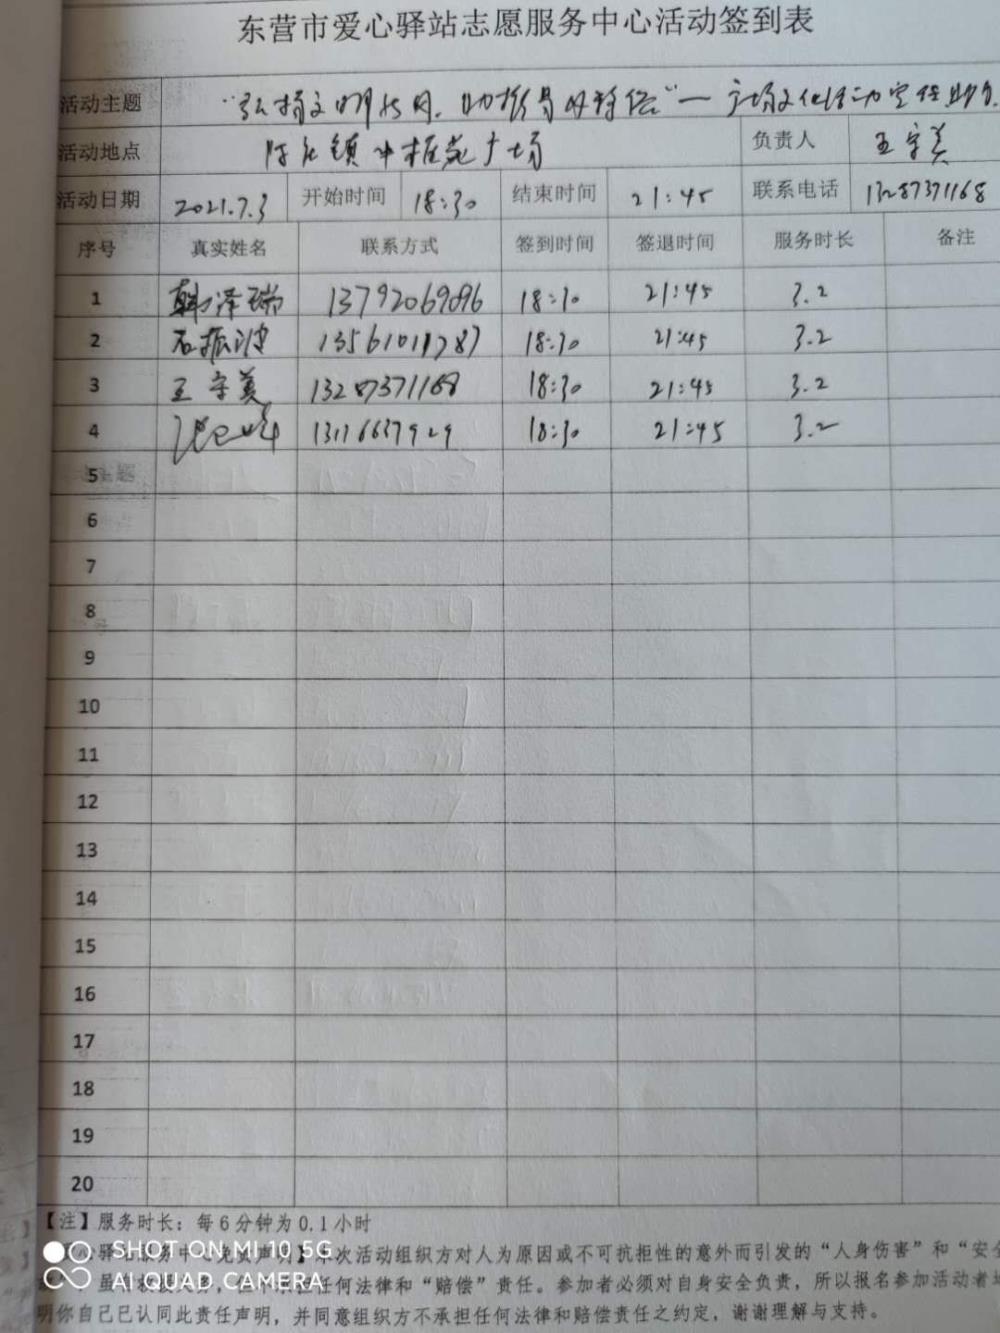 东营市爱心驿站志愿服务中心活动签到表
活动主题 "弘扬文明 广场文化活动
活动地点 镇 广场 负责人 王守美
活动日期 2021.7.3 开始时间 18:30 结束时间 21:45 联系电话 13287371168
序号 真实姓名 联系方式 签到时间 签退时间 服务时长 备注
1 韩泽瑞 13792069096 18:30 21:45 3.2
2 石振波 18:30 21:45 3.2
3 王守美 13287371168 18:30 21:45 3.2
4 18:30 21:45 3.2
5
6
7
8
9
10
11
12
13
14
15
16
17
18
19
20
【注】服务时长：每6分钟为0.1小时
心驿 服务中心免责声明】本次活动组织方对人为原因或不可抗拒性的意外而引发的“人身伤害”和“安全
但不承担任何法律和“赔偿”责任。参加者必须对自身安全负责，所以报名参加活动者
明你自己已认同此责任声明，并同意组织方不承担任何法律和赔偿责任之约定，谢谢理解与支持。
SHOT ON MI 10 5G
AI QUAD CAMERA